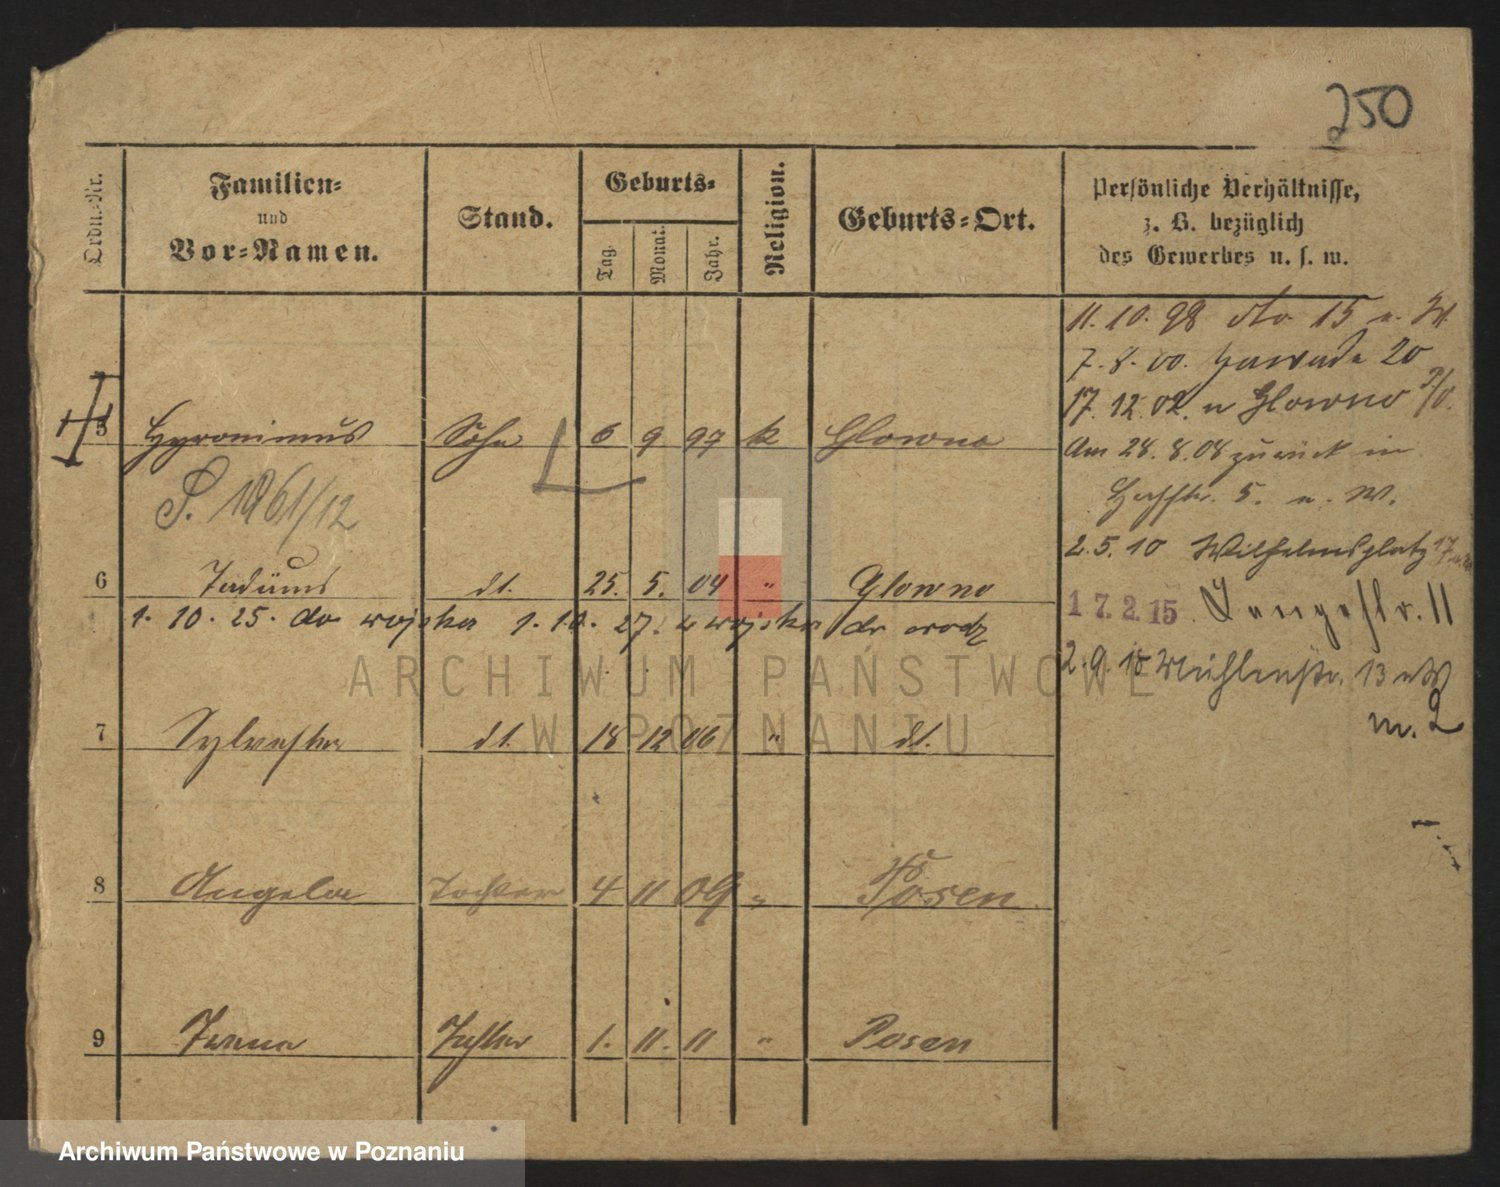 250
Ordn.-Nr.
Familien- und Vor-Namen.
Stand.
Geburts-
Tag. Monat. Jahr.
Religion.
Geburts-Ort.
Persönliche Verhältnisse,
z. B. bezüglich
des Gewerbes u. s. w.
11. 10. 98 15 u. W.
7. 8. 00. 20
17. 12. 02. n Glowno
5 Hyronimus Sohn 6 9 97 k Glowno
Am 28. 8. 08 zurück in
5. u. W.
S. 1961/12
2. 5. 10 Wilhelmsplatz 17
6 dt. 25. 5. 04 " Glowno
17.2.15. Langestr. 11
1. 10. 25. do wojska 1. 10. 27. z wojska
2. 9. 18 Mühlenstr. 13 u W
m. 2
7 Sylvester dt. 18 12 06 " dt.
8 Angela Tochter 4 11 09 " Posen
9 Tochter 1. 11. 11 " Posen
ARCHIWUM PAŃSTWOWE
W POZNANIU
Archiwum Państwowe w Poznaniu